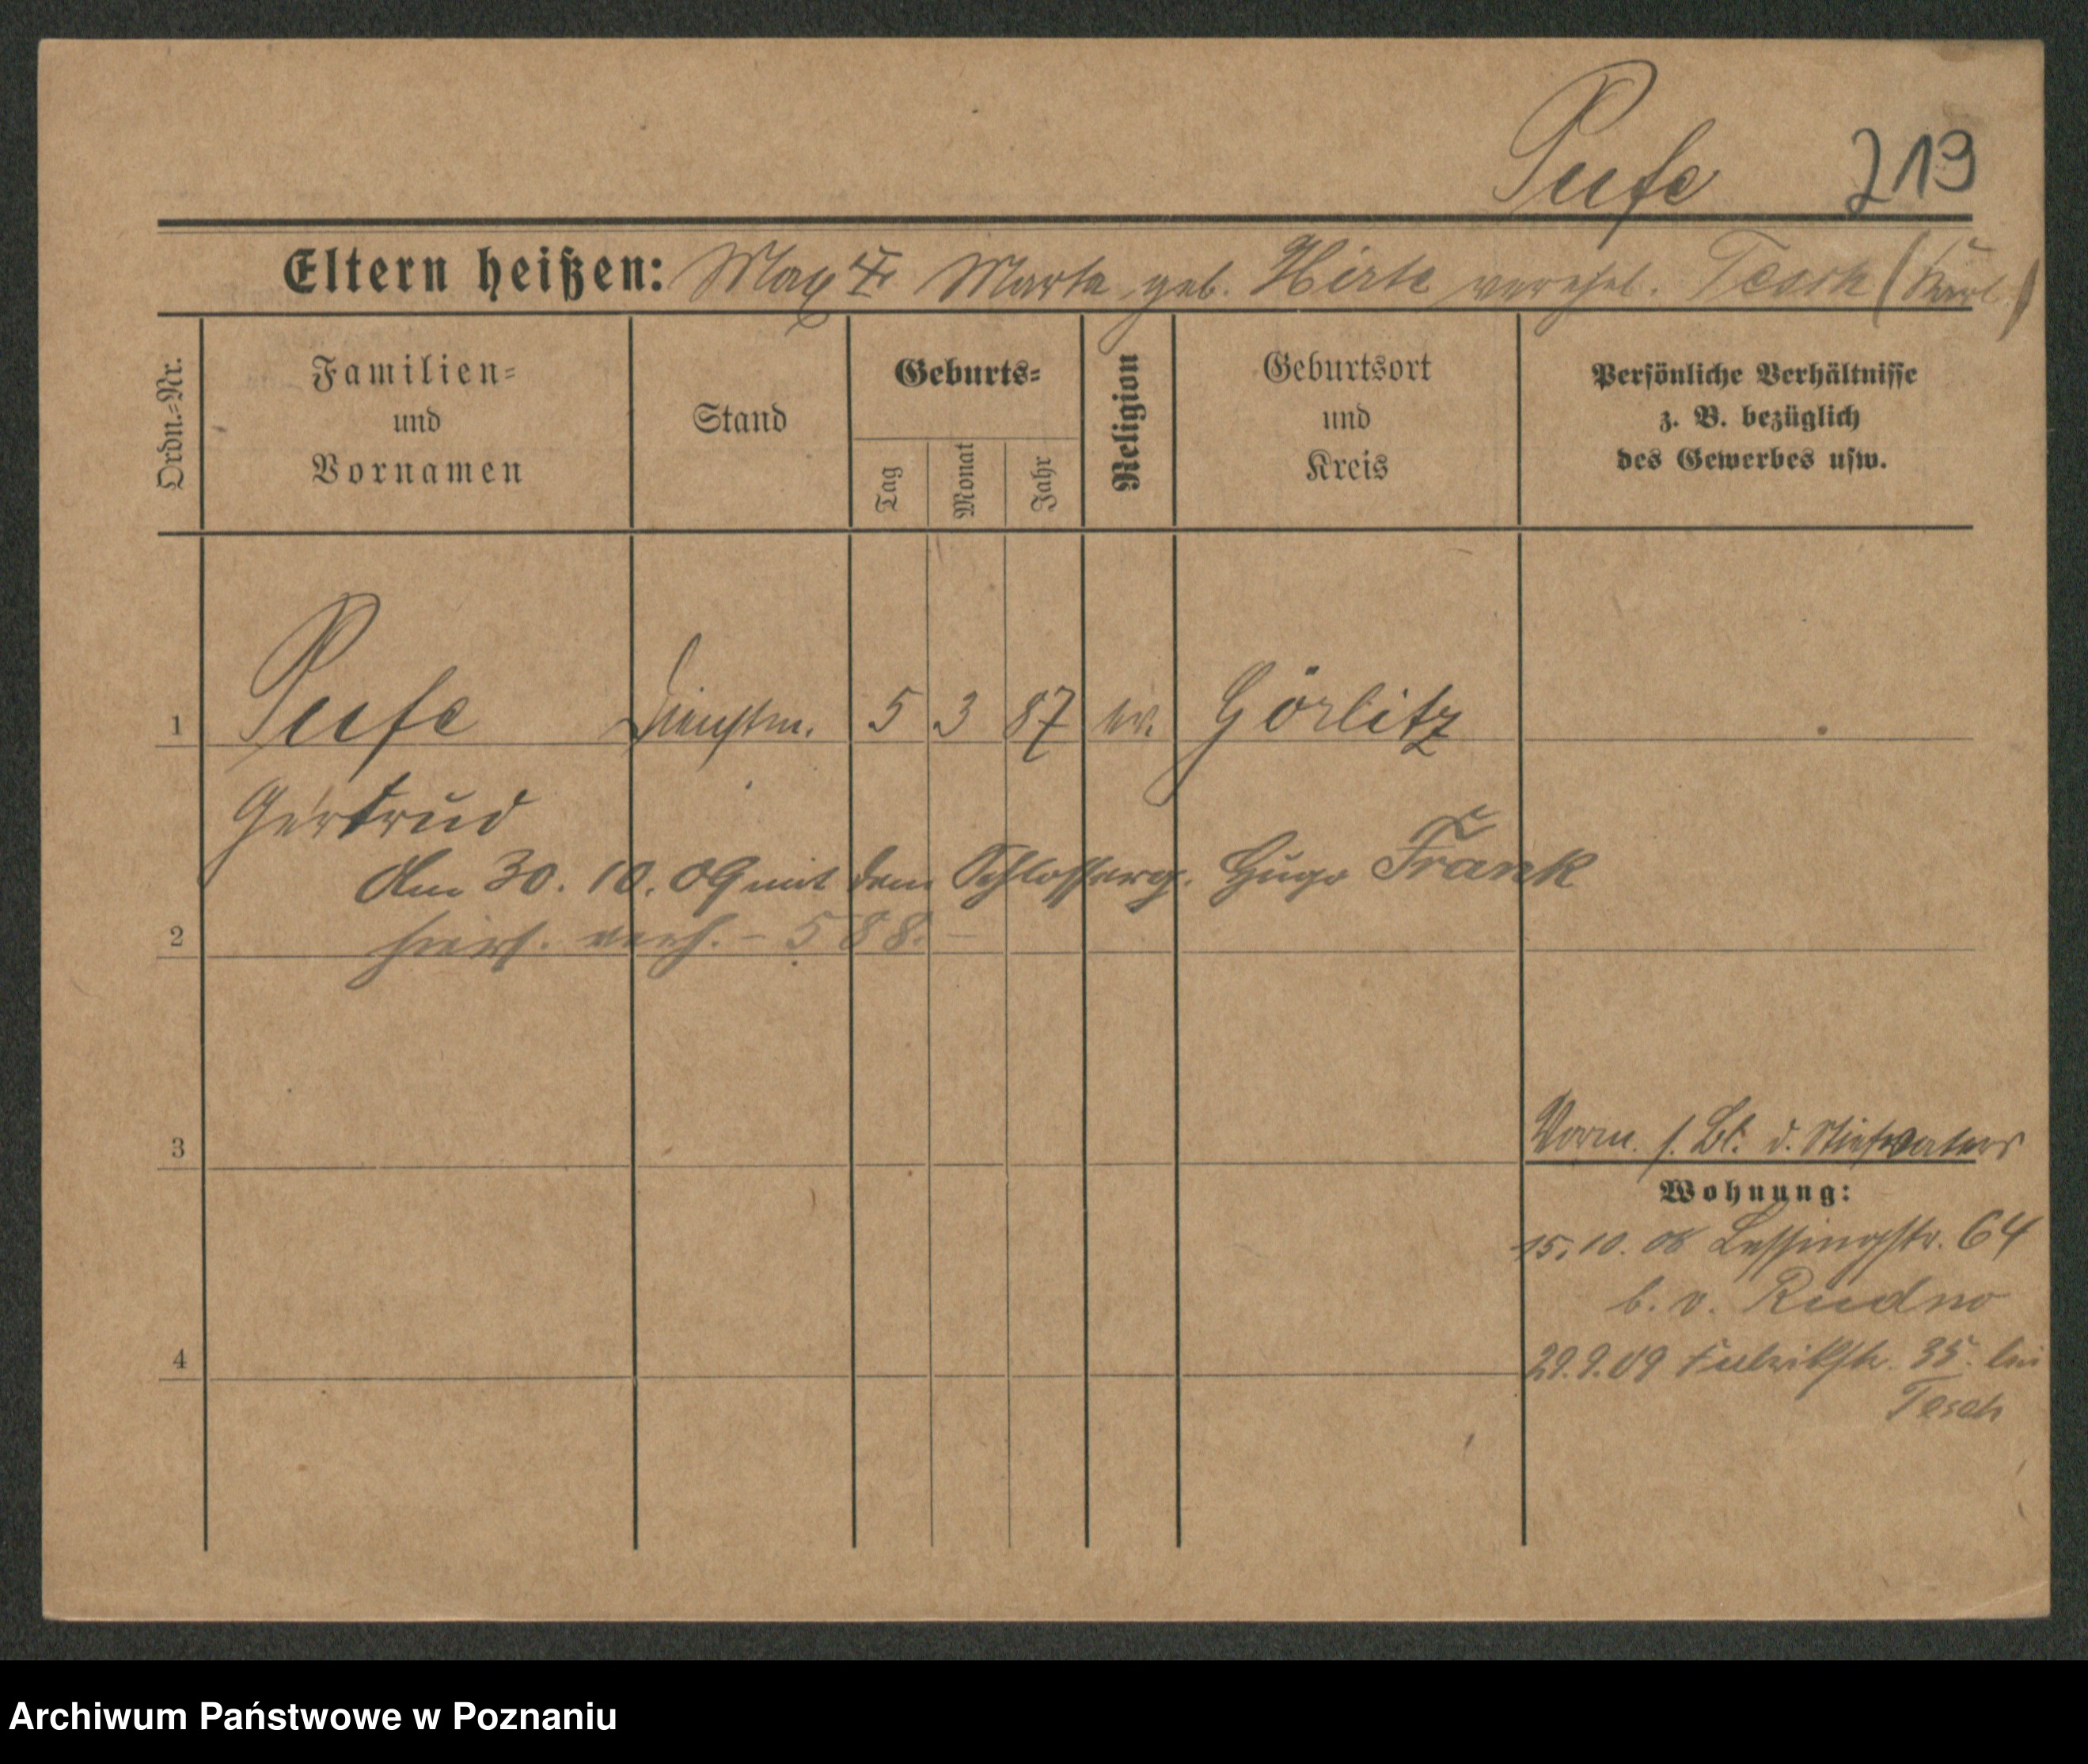 Pufe 219
Eltern heißen: Max Marta geb. Hirte verehel. Tesch (Karl)
Ordn.=Nr.
Familien=
und
Vornamen
Stand
Geburts=
Tag
Monat
Jahr
Religion
Geburtsort
und
Kreis
Persönliche Verhältnisse
z. B. bezüglich
des Gewerbes usw.
1 Pufe Dienstm. 5 3 87 ev. Görlitz
Gertrud
Am 30. 10. 09 mit dem Schlosserg. Hugo Frank
2 hiers. verh. - 588. -
3 Vorm. s. Bl. d. Stiefvaters
Wohnung:
15. 10. 08 Lessingstr. 64
b. v. Rudno
4 29. 9. 09 Fabrikstr. 35. bei
Tesch
Archiwum Państwowe w Poznaniu